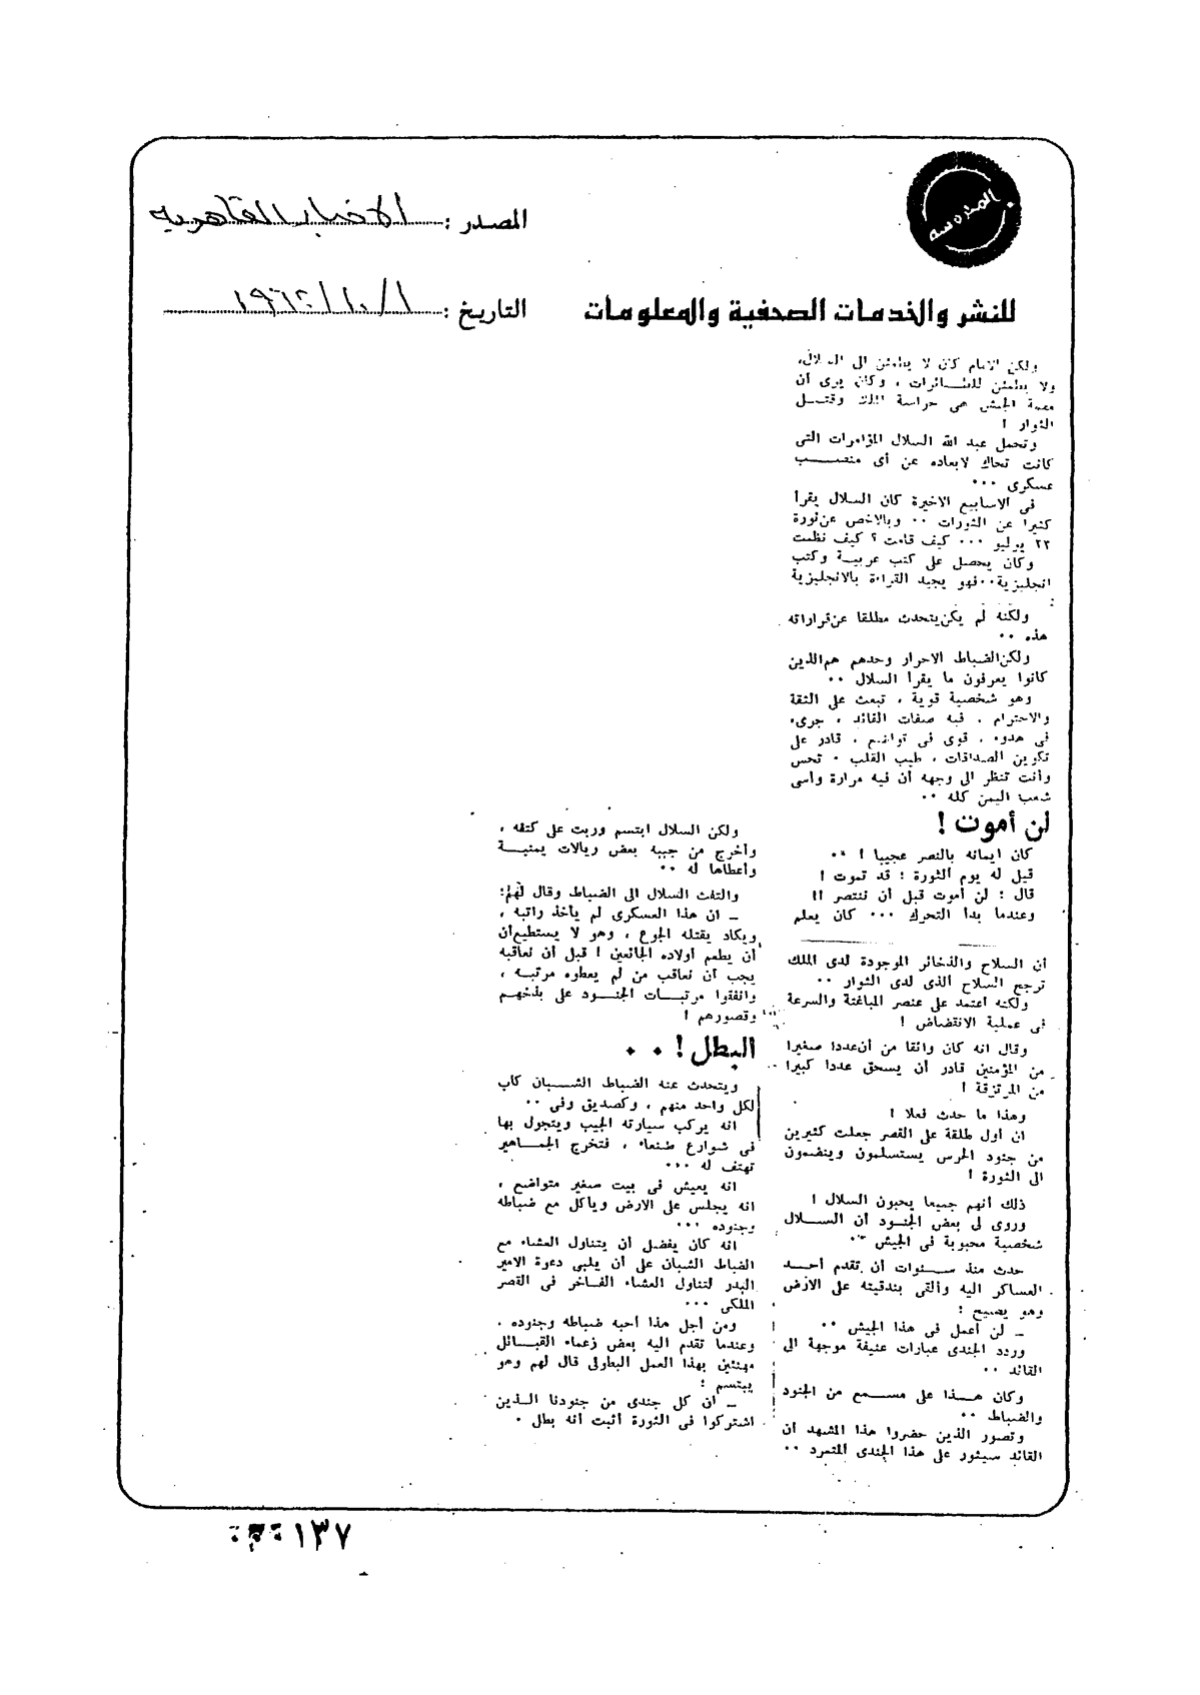 المصدر : الاخبار القاهرية
التاريخ : ١٩٦٢/١٠/١
للنشر والخدمات الصحفية والمعلومات
ولكن الامام كان لا يطمئن الى السلال،
ولا يطمئن للطائرات ، وكان يرى أن
مهمة الجيش هى حراسة الملك وقتل
الثوار !
وتحمل عبد الله السلال المؤامرات التى
كانت تحاك لابعاده عن أى منصب
عسكرى ...
فى الاسابيع الاخيرة كان السلال يقرأ
كثيرا عن الثورات .. وبالاخص عن ثورة
٢٣ يوليو ... كيف قامت ؟ كيف نظمت
وكان يحصل على كتب عربية وكتب
انجليزية..فهو يجيد القراءة بالانجليزية
:
ولكنه لم يكن يتحدث مطلقا عن قراراته
هذه ..
ولكن الضباط الاحرار وحدهم هم الذين
كانوا يعرفون ما يقرأ السلال ..
وهو شخصية قوية ، تبعث على الثقة
والاحترام ، فيه صفات القائد ، جرىء
فى هدوء ، قوى فى تواضع ، قادر على
تكوين الصداقات ، طيب القلب . تحس
وأنت تنظر الى وجهه أن فيه مرارة وأسى
شعب اليمن كله ..
لن أموت !
كان ايمانه بالنصر عجيبا ! ..
قيل له يوم الثورة : قد تموت !
قال : لن أموت قبل أن ننتصر !!
وعندما بدأ التحرك ... كان يعلم
أن السلاح والذخائر الموجودة لدى الملك
ترجح السلاح الذى لدى الثوار ..
ولكنه اعتمد على عنصر المباغتة والسرعة
فى عملية الانقضاض !
وقال انه كان واثقا من أن عددا صغيرا
من المؤمنين قادر أن يسحق عددا كبيرا
من المرتزقة !
وهذا ما حدث فعلا !
ان أول طلقة على القصر جعلت كثيرين
من جنود الحرس يستسلمون وينضمون
الى الثورة !
ذلك أنهم جميعا يحبون السلال !
وروى لى بعض الجنود أن السلال
شخصية محبوبة فى الجيش ..
حدث منذ سنوات أن تقدم أحد
العساكر اليه وألقى بندقيته على الارض
وهو يصيح :
ـ لن أعمل فى هذا الجيش ..
وردد الجندى عبارات عنيفة موجهة الى
القائد ..
وكان هذا على مسمع من الجنود
والضباط ..
وتصور الذين حضروا هذا المشهد أن
القائد سيثور على هذا الجندى المتمرد ..
ولكن السلال ابتسم وربت على كتفه ،
وأخرج من جيبه بعض ريالات يمنية
وأعطاها له ..
والتفت السلال الى الضباط وقال لهم:
ـ ان هذا العسكرى لم يأخذ راتبه ،
ويكاد يقتله الجوع ، وهو لا يستطيع أن
أن يطعم أولاده الجائعين ! قبل أن نعاقبه
يجب أن نعاقب من لم يعطوه مرتبه ،
وانفقوا مرتبات الجنود على بذخهم
وقصورهم !
البطل ! ..
ويتحدث عنه الضباط الشبان كأب
لكل واحد منهم ، وكصديق وفى ..
انه يركب سيارته الجيب ويتجول بها
فى شوارع صنعاء ، فتخرج الجماهير
تهتف له ...
انه يعيش فى بيت صغير متواضع ،
انه يجلس على الارض وياكل مع ضباطه
وجنوده ...
انه كان يفضل أن يتناول العشاء مع
الضباط الشبان على أن يلبى دعوة الامير
البدر لتناول العشاء الفاخر فى القصر
الملكى ...
ومن أجل هذا أحبه ضباطه وجنوده .
وعندما تقدم اليه بعض زعماء القبائل
مهنئين بهذا العمل البطولى قال لهم وهو
يبتسم :
ـ ان كل جندى من جنودنا الذين
اشتركوا فى الثورة أثبت أنه بطل .
١٣٧